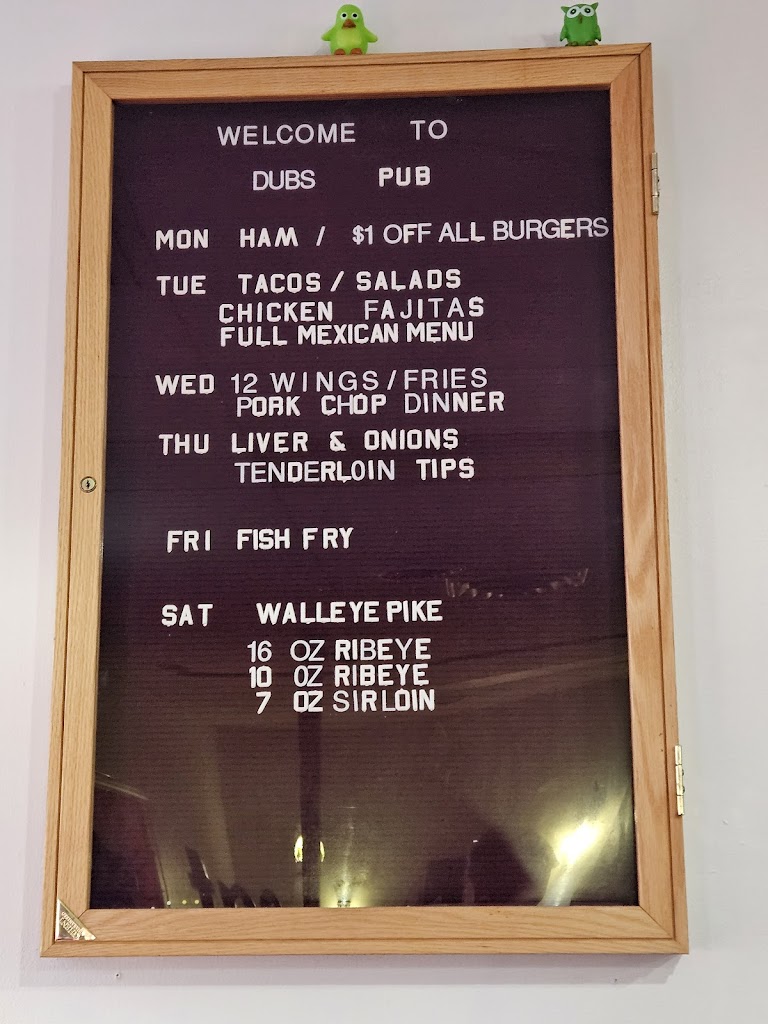 WELCOME TO
DUBS PUB
MON HAM / $1 OFF ALL BURGERS
TUE TACOS / SALADS
CHICKEN FAJITAS
FULL MEXICAN MENU
WED 12 WINGS / FRIES
PORK CHOP DINNER
THU LIVER & ONIONS
TENDERLOIN TIPS
FRI FISH FRY
SAT WALLEYE PIKE
16 OZ RIBEYE
10 OZ RIBEYE
7 OZ SIRLOIN